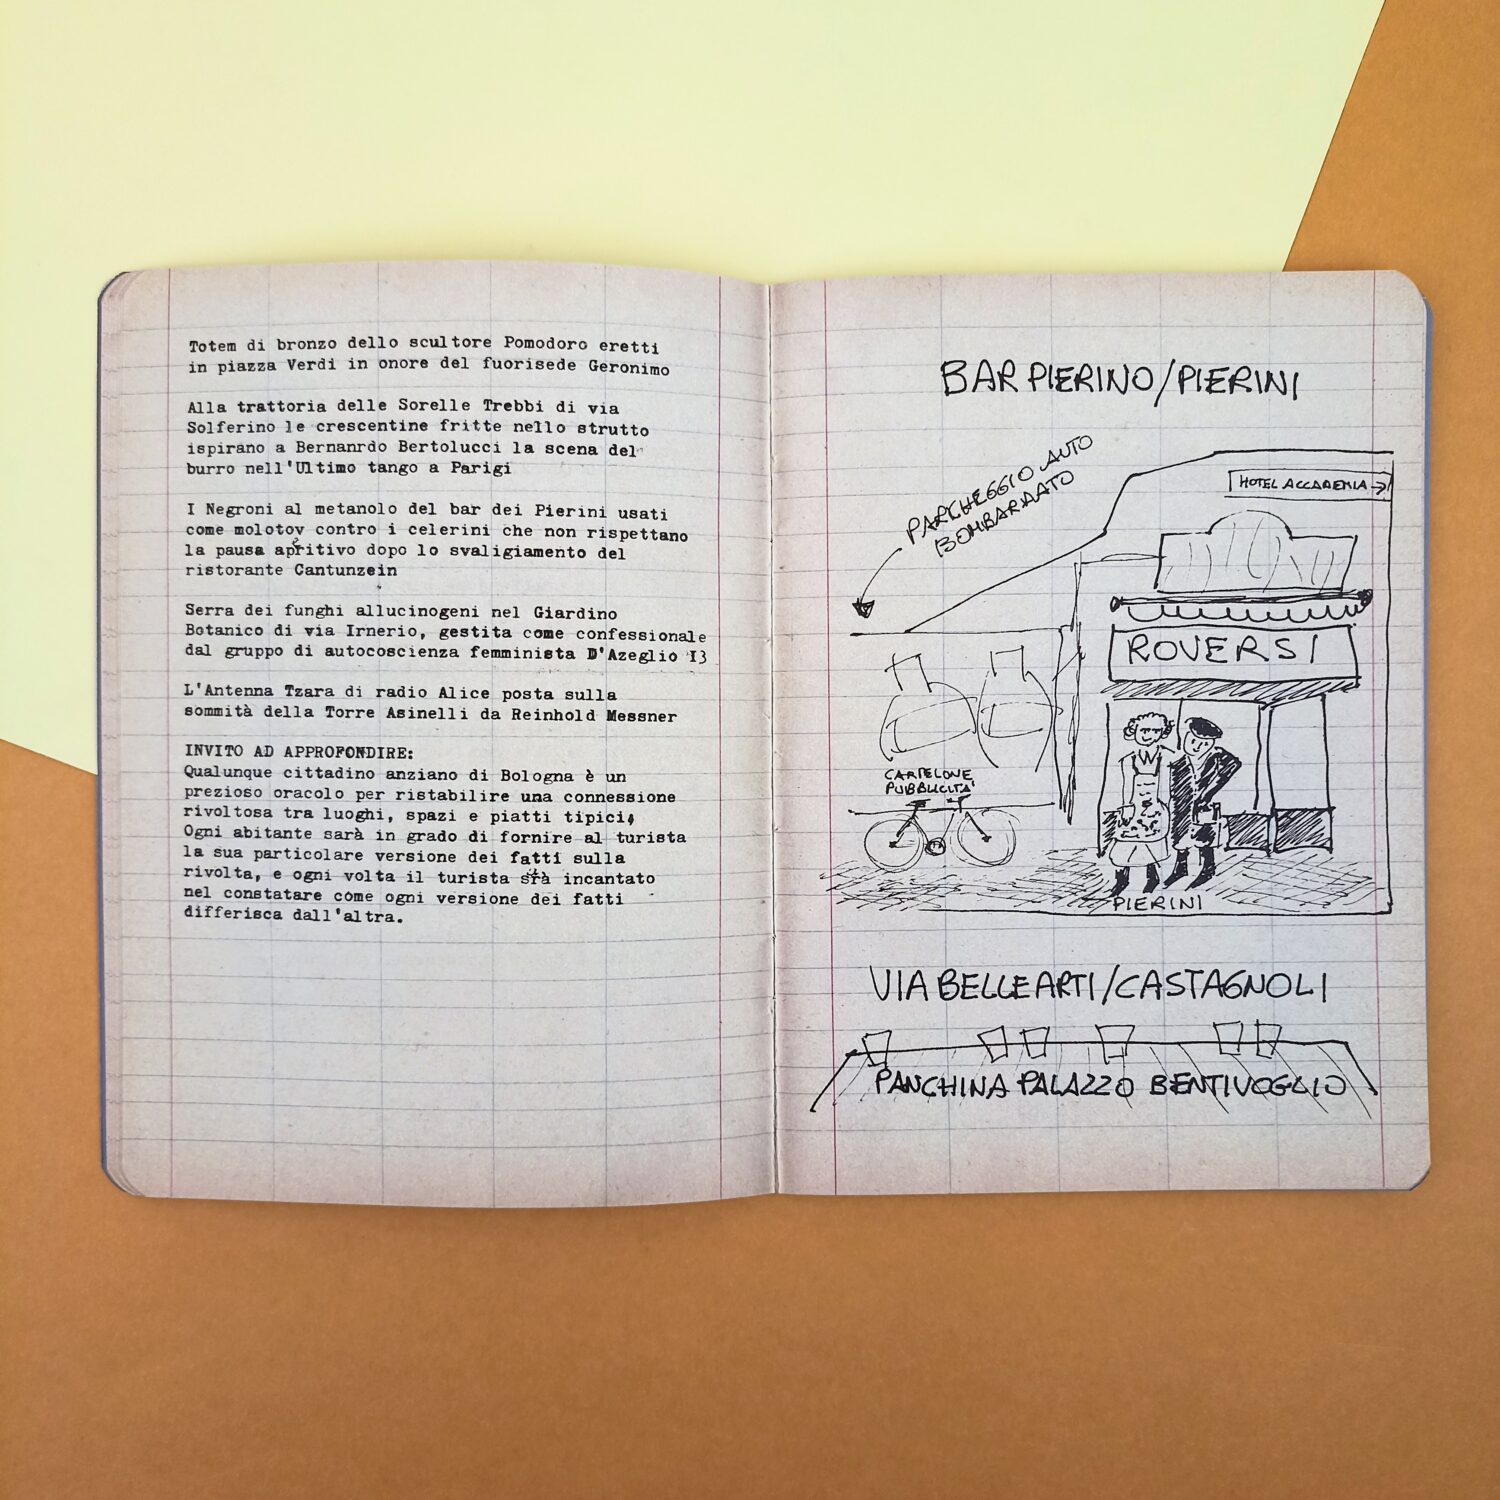 Totem di bronzo dello scultore Pomodoro eretti
in piazza Verdi in onore del fuorisede Geronimo
Alla trattoria delle Sorelle Trebbi di via
Solferino le crescentine fritte nello strutto
ispirano a Bernanrdo Bertolucci la scena del
burro nell'Ultimo tango a Parigi
I Negroni al metanolo del bar dei Pierini usati
come molotov contro i celerini che non rispettano
la pausa apritivo dopo lo svaligiamento del
ristorante Cantunzein
Serra dei funghi allucinogeni nel Giardino
Botanico di via Irnerio, gestita come confessionale
dal gruppo di autocoscienza femminista D'Azeglio I3
L'Antenna Tzara di radio Alice posta sulla
sommità della Torre Asinelli da Reinhold Messner
INVITO AD APPROFONDIRE:
Qualunque cittadino anziano di Bologna è un
prezioso oracolo per ristabilire una connessione
rivoltosa tra luoghi, spazi e piatti tipici.
Ogni abitante sarà in grado di fornire al turista
la sua particolare versione dei fatti sulla
rivolta, e ogni volta il turista srà incantato
nel constatare come ogni versione dei fatti
differisca dall'altra.
BAR PIERINO/PIERINI
PARCHEGGIO AUTO
BOMBARDATO
HOTEL ACCADEMIA →
ROVERSI
CARTELONE
PUBBLICITA'
PIERINI
VIA BELLE ARTI/CASTAGNOLI
PANCHINA PALAZZO BENTIVOGLIO